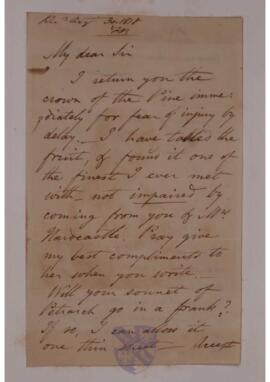 My dear Sir
I return you the
crown of the Pine imme-
diately for fear of injury by
delay — I have tasted the
fruit, & found it one of
the finest I ever met
with — not impaired by
coming from you & Mrs
Newcastle. Pray give
my best compliments to
her when you write —
Will your sonnet of
Petrarch go in a frank?
If so, I can allow it
one thin sheet — Accept